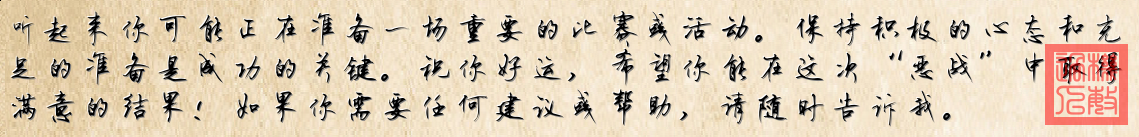 听起来你可能正在准备一场重要的比赛或活动。保持积极的心态和充
足的准备是成功的关键。祝你好运，希望你能在这次“恶战”中取得
满意的结果！如果你需要任何建议或帮助，请随时告诉我。